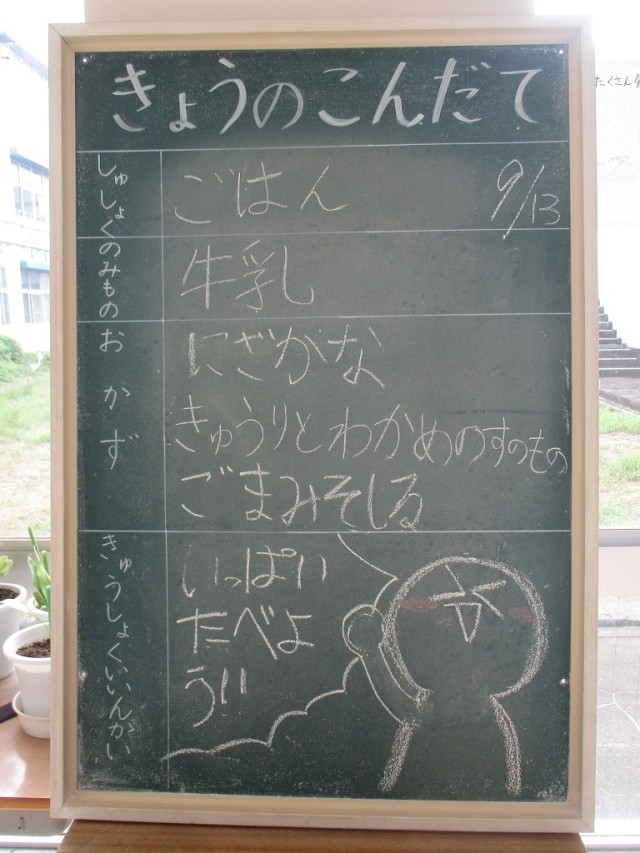 きょうのこんだて
しゅしょく
ごはん
9/13
のみもの
牛乳
おかず
にざかな
きゅうりとわかめのすのもの
ごまみそしる
きゅうしょくいいんかい
いっぱい
たべよ
う!!
たくさん